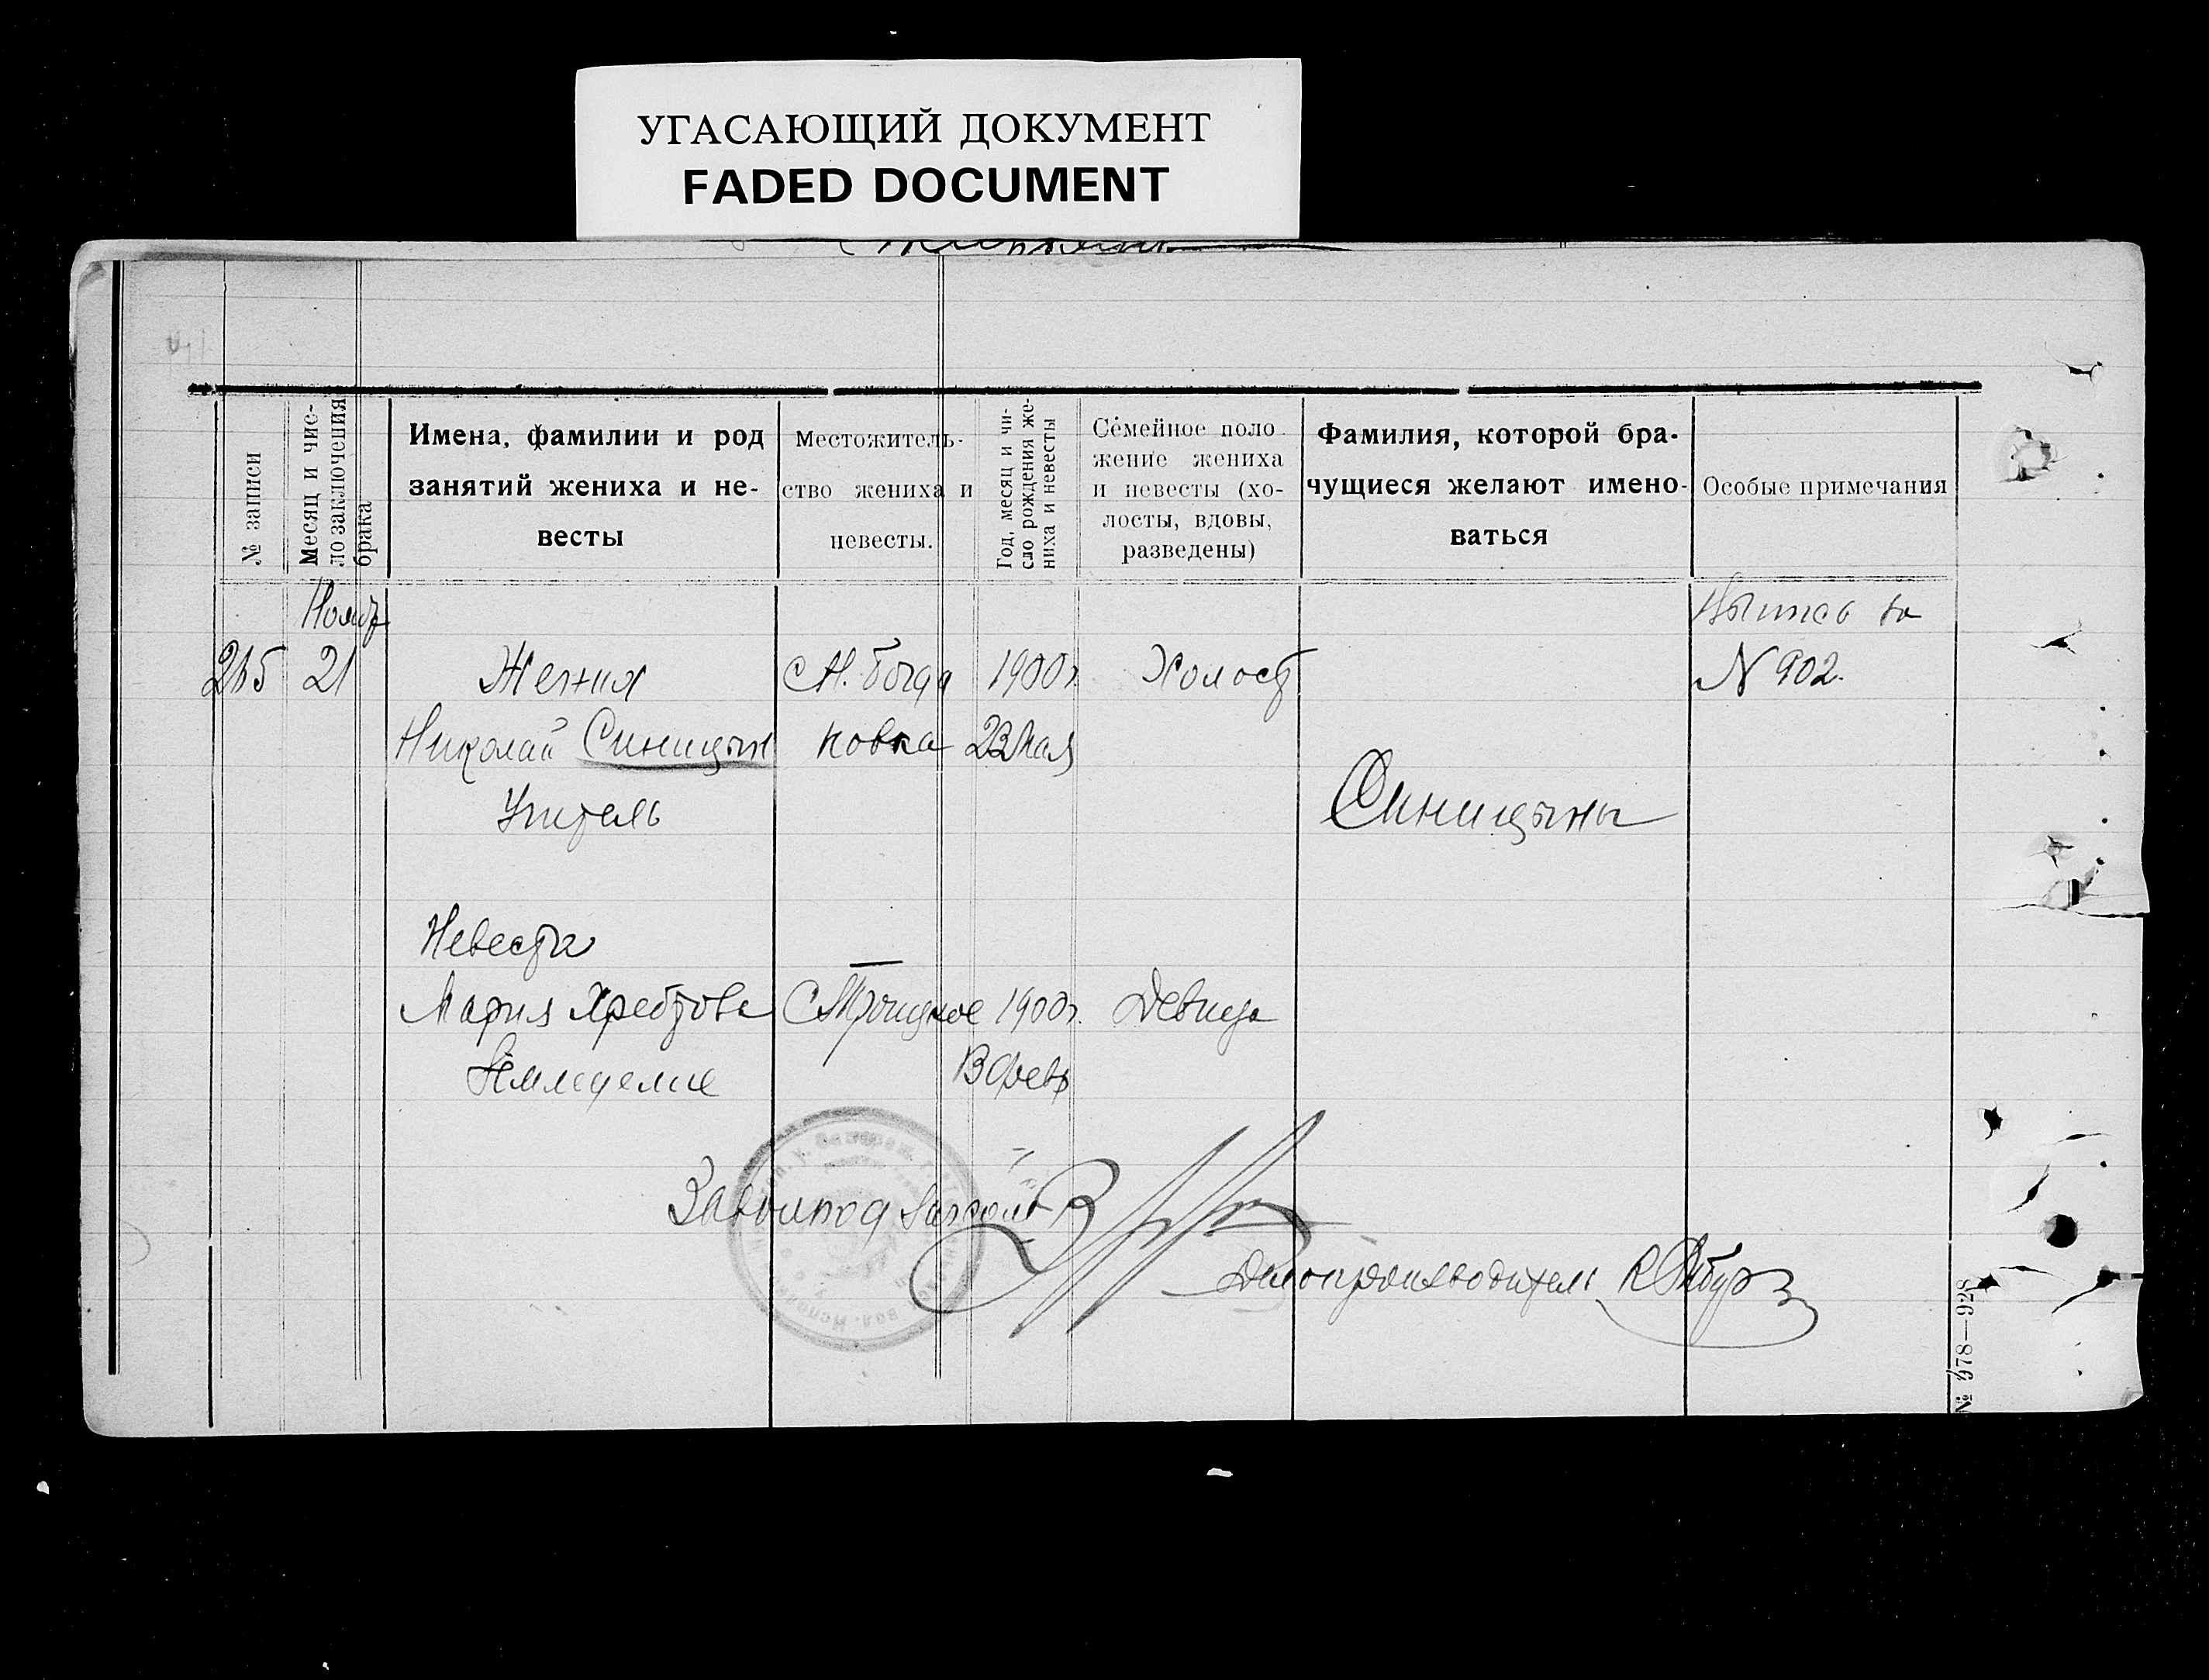 УГАСАЮЩИЙ ДОКУМЕНТ
FADED DOCUMENT
№ записи
Месяц и чис-
ло заключения
брака
Имена, фамилии и род
занятий жениха и не-
весты
Местожитель-
ство жениха и
невесты.
Год, месяц и чи-
сло рождения же-
ниха и невесты
Семейное поло
жение жениха
и невесты (хо-
лосты, вдовы,
разведены)
Фамилия, которой бра-
чущиеся желают имено-
ваться
Особые примечания
Ноябр
265 21
Жених
Николай Синицын
Учитель
С Н. Богда
новка
1900г.
23 Мая
Холост
Синицыны
за
N 902.
Невеста
Мария Хребтова
Земледелие
С Троицкое
1900г.
13 февр
Девица
Делопроизводитель
№ 978—928